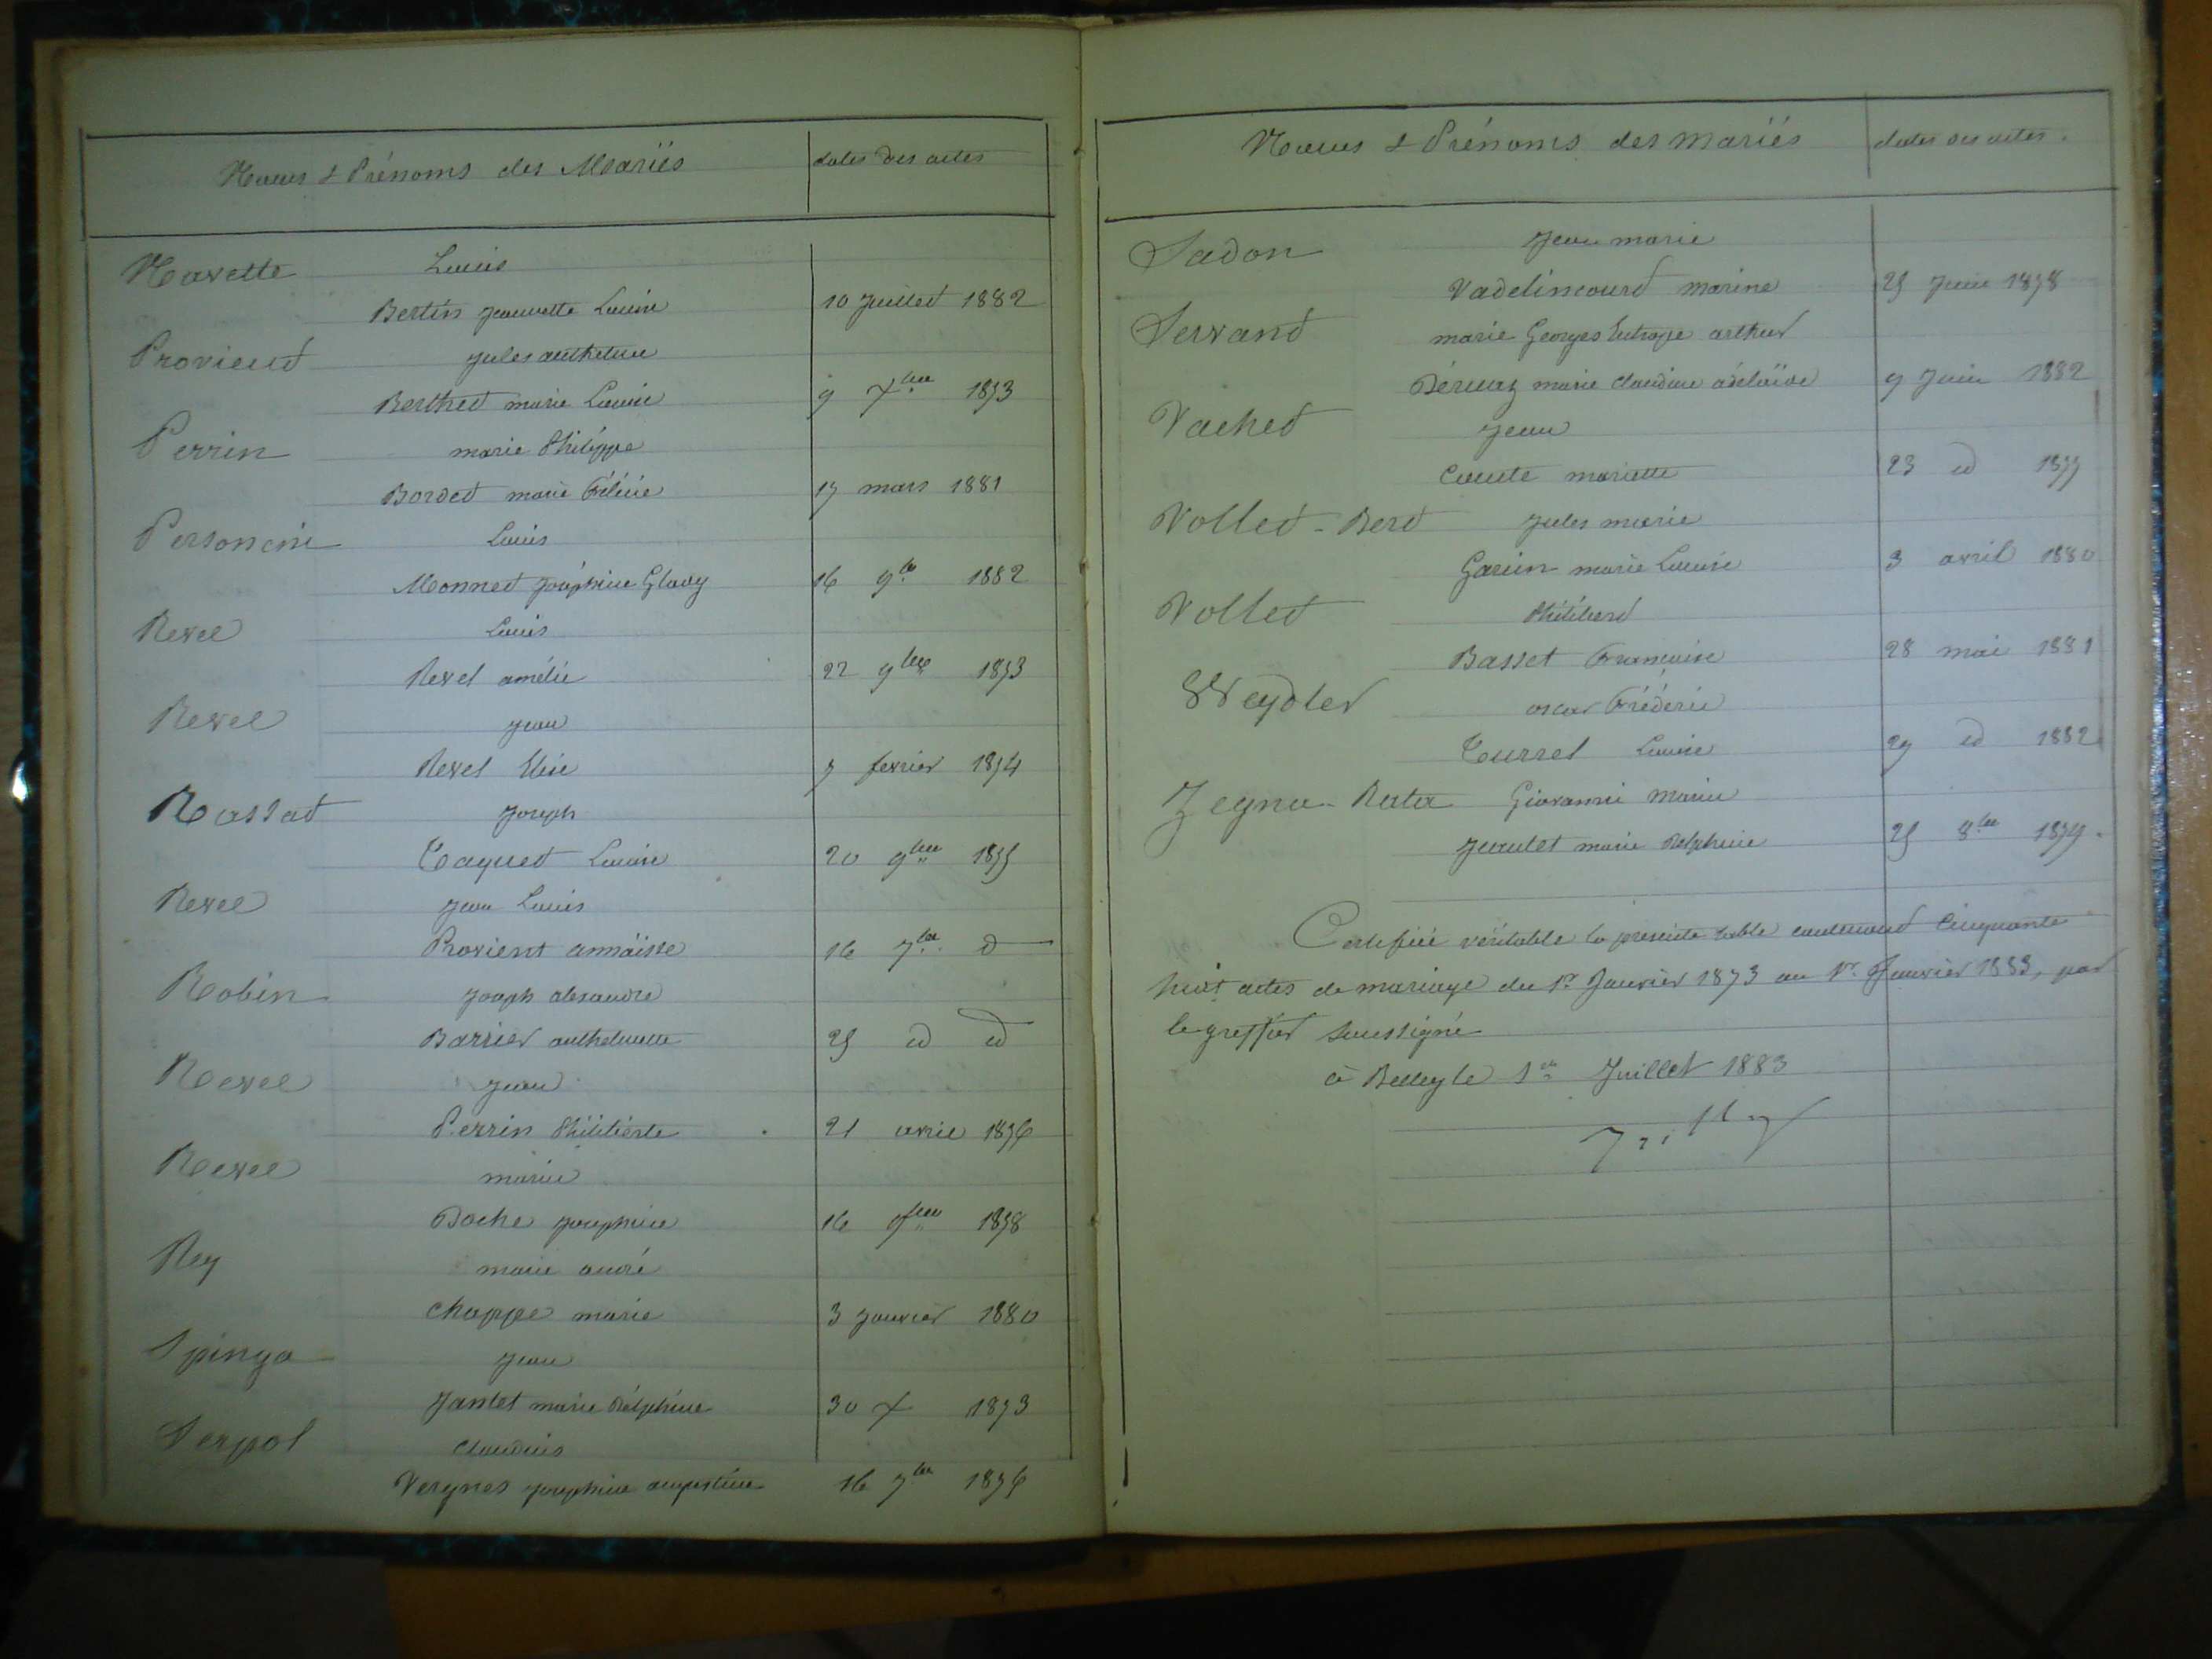 Noms & Prénoms des Mariés dates des actes
Navette Louis
Bertin jeannette Louise 10 juillet 1882
Provient jules anthelme
Berthet marie Louise 9 Xbre 1873
Perrin marie Philippe
Bordet marie 17 mars 1881
Personeni Louis
Monnet joséphine 16 9bre 1882
Revel Louis
Revel amélie 22 9bre 1873
Revel jean
Revel Elise 7 fevrier 1874
Rassat joseph
Taquet Louise 20 9bre 1875
Revel jean Louis
Provient annaïsse 16 7bre d
Robin joseph alexandre
Barrier anthelmette 25 id id
Revel jean
Perrin Philiberte 21 avril 1876
Revel marie
Doche josephine 16 1878
Rey marie andré
Chappe marie 3 janvier 1880
Spinga jean
Jantet marie Delphine 30 X 1873
Serpol claudius
Vergnes josephine augustine 16 7bre 1876
Noms & Prénoms des mariés dates des actes.
Sadon jean marie
Vadelincourt marine 25 juin 1878
Servant marie Georges Eutrope arthur
marie claudine adélaïde 9 Juin 1882
Vachet jean
mariette 23 id 1877
Vollet-Bert jules marie
Garin marie Louise 3 avril 1880
Vollet Philibert
Basset Françoise 28 mai 1881
Weydler oscar Fréderic
Tourrel Louise 29 id 1882
Zegna-Rata Giovanni Maria
marie Delphine 25 8bre 1879.
Certifiée véritable la presente table contenant Cinquante
huit actes de mariage du 1er Janvier 1873 au 1er Janvier 1883, par
le greffier soussigné
à Belley le 1er Juillet 1883